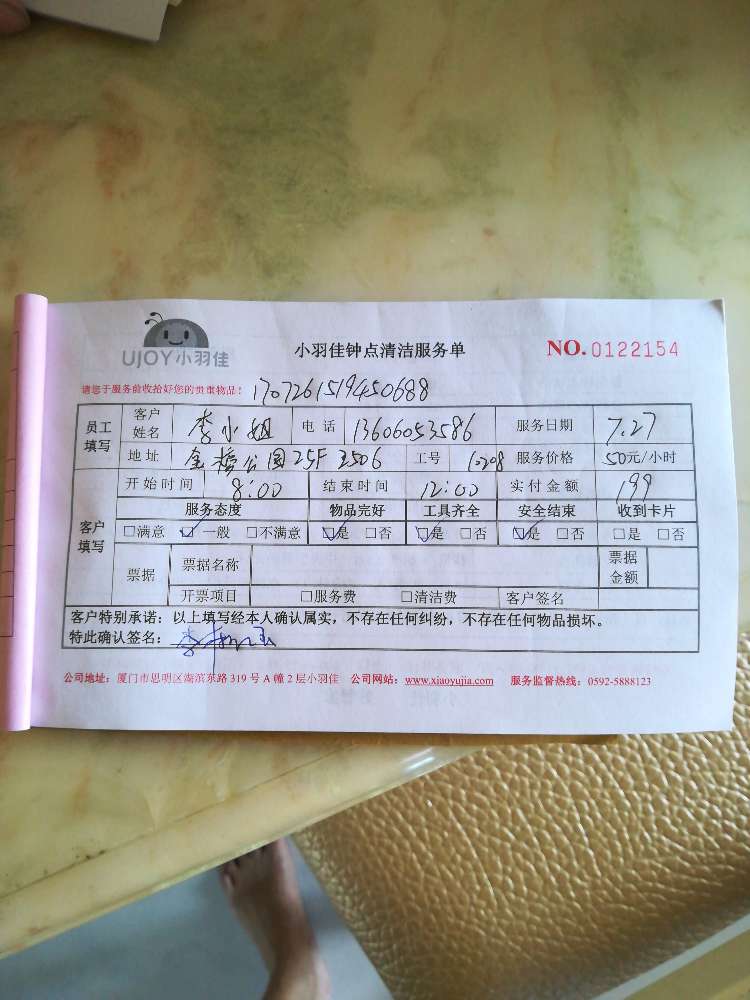 UJOY小羽佳 小羽佳钟点清洁服务单 NO.0122154
请您于服务前收拾好您的贵重物品! 170726151945068​8
员工填写 客户姓名 李小姐 电话 13606053586 服务日期 7.27
地址 金榜公园25F 2506 工号 10208 服务价格 50元/小时
客户填写 开始时间 8:00 结束时间 12:00 实付金额 199
服务态度 物品完好 工具齐全 安全结束 收到卡片
□满意 ☑一般 □不满意 ☑是 □否 ☑是 □否 ☑是 □否 □是 □否
票据 票据名称 票据金额
开票项目 □服务费 □清洁费 客户签名
客户特别承诺:以上填写经本人确认属实,不存在任何纠纷,不存在任何物品损坏。
特此确认签名:
公司地址:厦门市思明区湖滨东路319号A幢2层小羽佳 公司网站:www.xiaoyujia.com 服务监督热线:0592-5888123